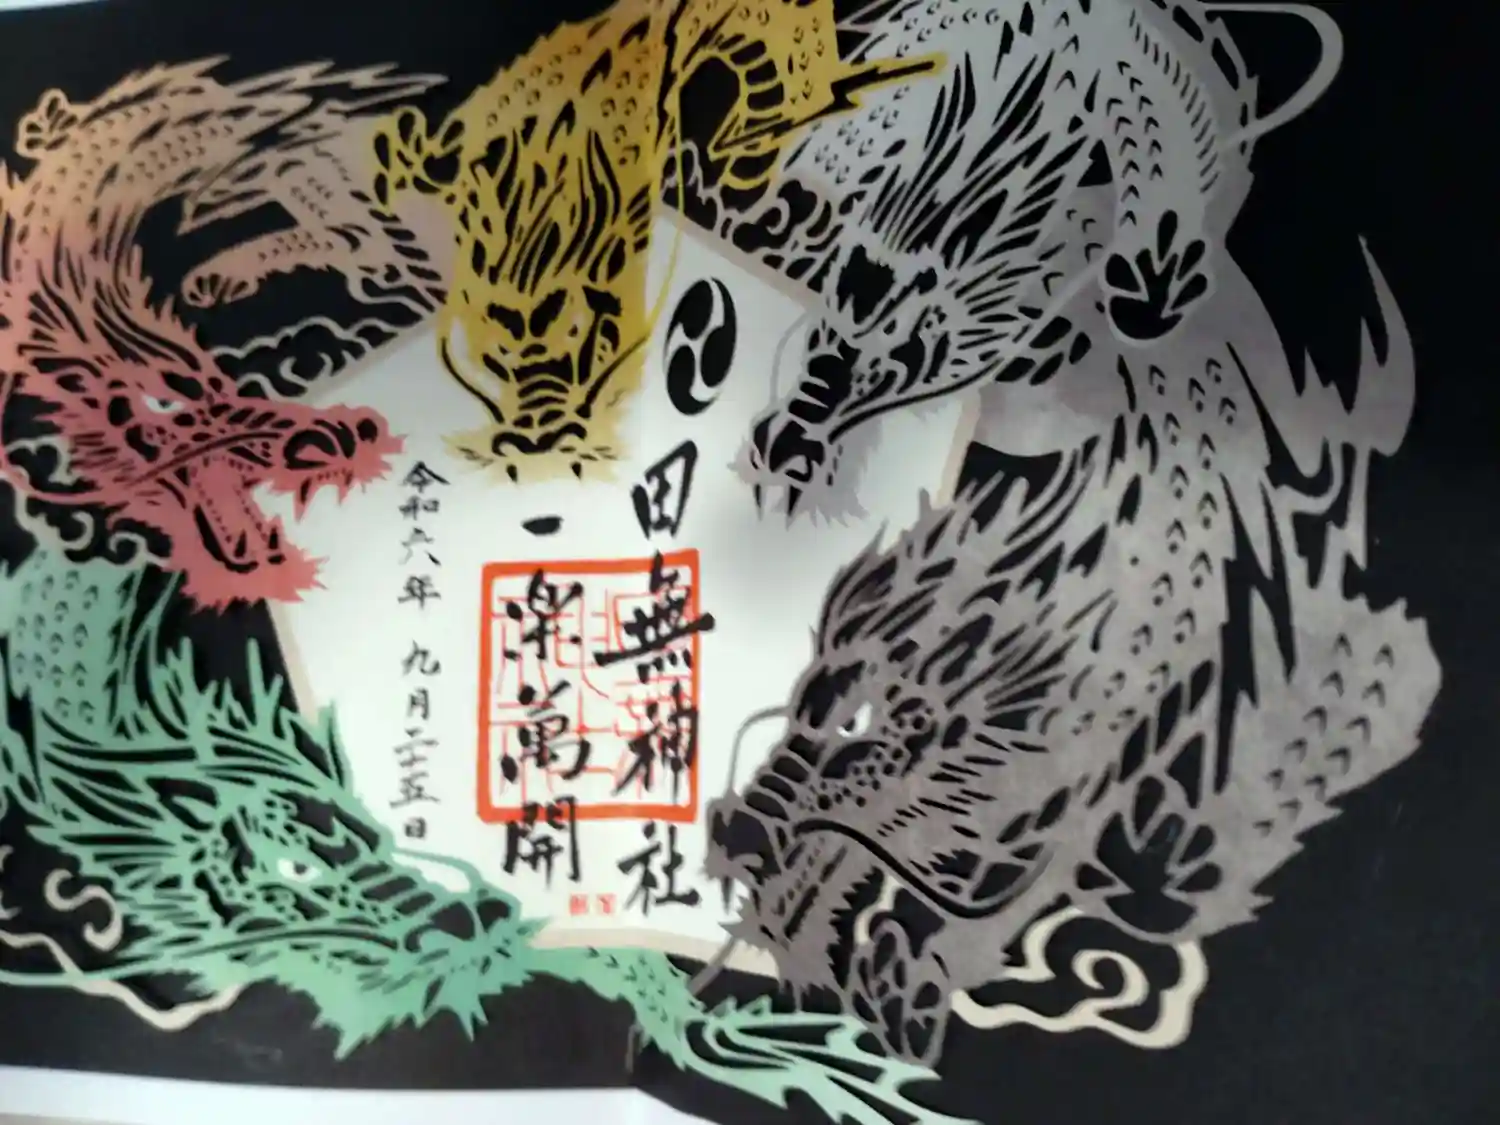 田無神社
一楽萬開
令和六年 九月二十五日